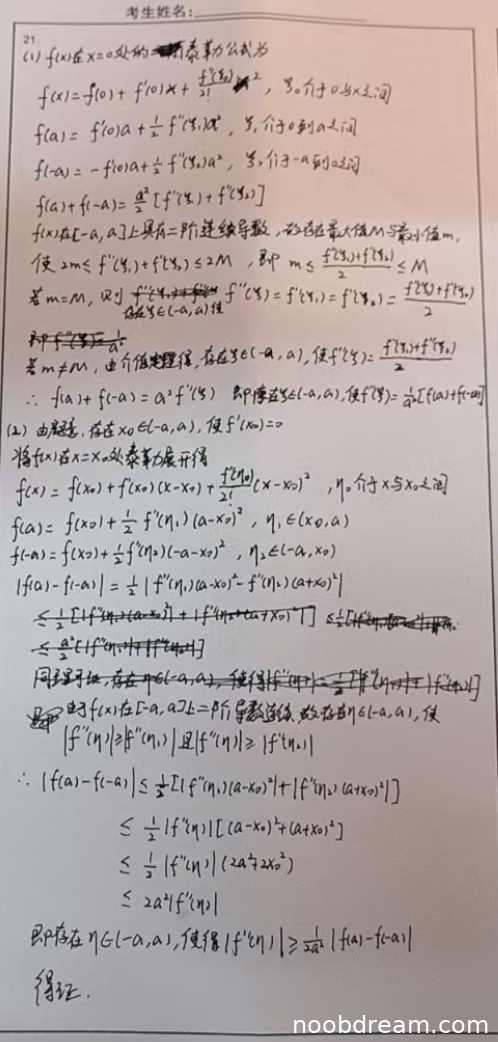 考生姓名:
21.
(1) f(x)在x=0处的泰勒公式为
f(x)=f(0)+f'(0)x+f''(ξ₀)/2! x², ξ₀介于0与x之间
f(a)=f'(0)a+½f''(ξ₁)a², ξ₁介于0到a之间
f(-a)=-f'(0)a+½f''(ξ₂)a², ξ₂介于-a到0之间
f(a)+f(-a)=a²/2[f''(ξ₁)+f''(ξ₂)]
f(x)在[-a,a]上具有二阶连续导数,故存在最大值M与最小值m,
使2m≤f''(ξ₁)+f''(ξ₂)≤2M,即 m≤(f''(ξ₁)+f''(ξ₂))/2≤M
若m=M,则存在ξ∈(-a,a)使 f''(ξ)=f''(ξ₁)=f''(ξ₂)=(f''(ξ₁)+f''(ξ₂))/2
即f''(ξ)=1/a²
若m≠M,由介值定理得,存在ξ∈(-a,a),使f''(ξ)=(f''(ξ₁)+f''(ξ₂))/2
∴ f(a)+f(-a)=a²f''(ξ) 即存在ξ∈(-a,a),使f''(ξ)=1/a²[f(a)+f(-a)]
(2) 由题意,存在x₀∈(-a,a),使f'(x₀)=0
将f(x)在x=x₀处泰勒展开得
f(x)=f(x₀)+f'(x₀)(x-x₀)+f''(η₀)/2!(x-x₀)²,η₀介于x与x₀之间
f(a)=f(x₀)+½f''(η₁)(a-x₀)²,η₁∈(x₀,a)
f(-a)=f(x₀)+½f''(η₂)(-a-x₀)²,η₂∈(-a,x₀)
|f(a)-f(-a)|=½|f''(η₁)(a-x₀)²-f''(η₂)(a+x₀)²|
≤½[|f''(η₁)(a-x₀)²|+|f''(η₂)(a+x₀)²|]
≤a²/2[|f''(η₁)|+|f''(η₂)|]
存在η∈(-a,a),使得|f''(η)|=½[|f''(η₁)|+|f''(η₂)|]
由于f(x)在[-a,a]上二阶导数连续,故存在η∈(-a,a),使
|f''(η)|≥|f''(η₁)|且|f''(η)|≥|f''(η₂)|
∴ |f(a)-f(-a)|≤½[|f''(η₁)(a-x₀)²|+|f''(η₂)(a+x₀)²|]
≤½|f''(η)|[(a-x₀)²+(a+x₀)²]
≤½|f''(η)|(2a²+2x₀²)
≤2a²|f''(η)|
即存在η∈(-a,a),使得|f''(η)|≥1/2a²|f(a)-f(-a)|
得证.
noobdream.com